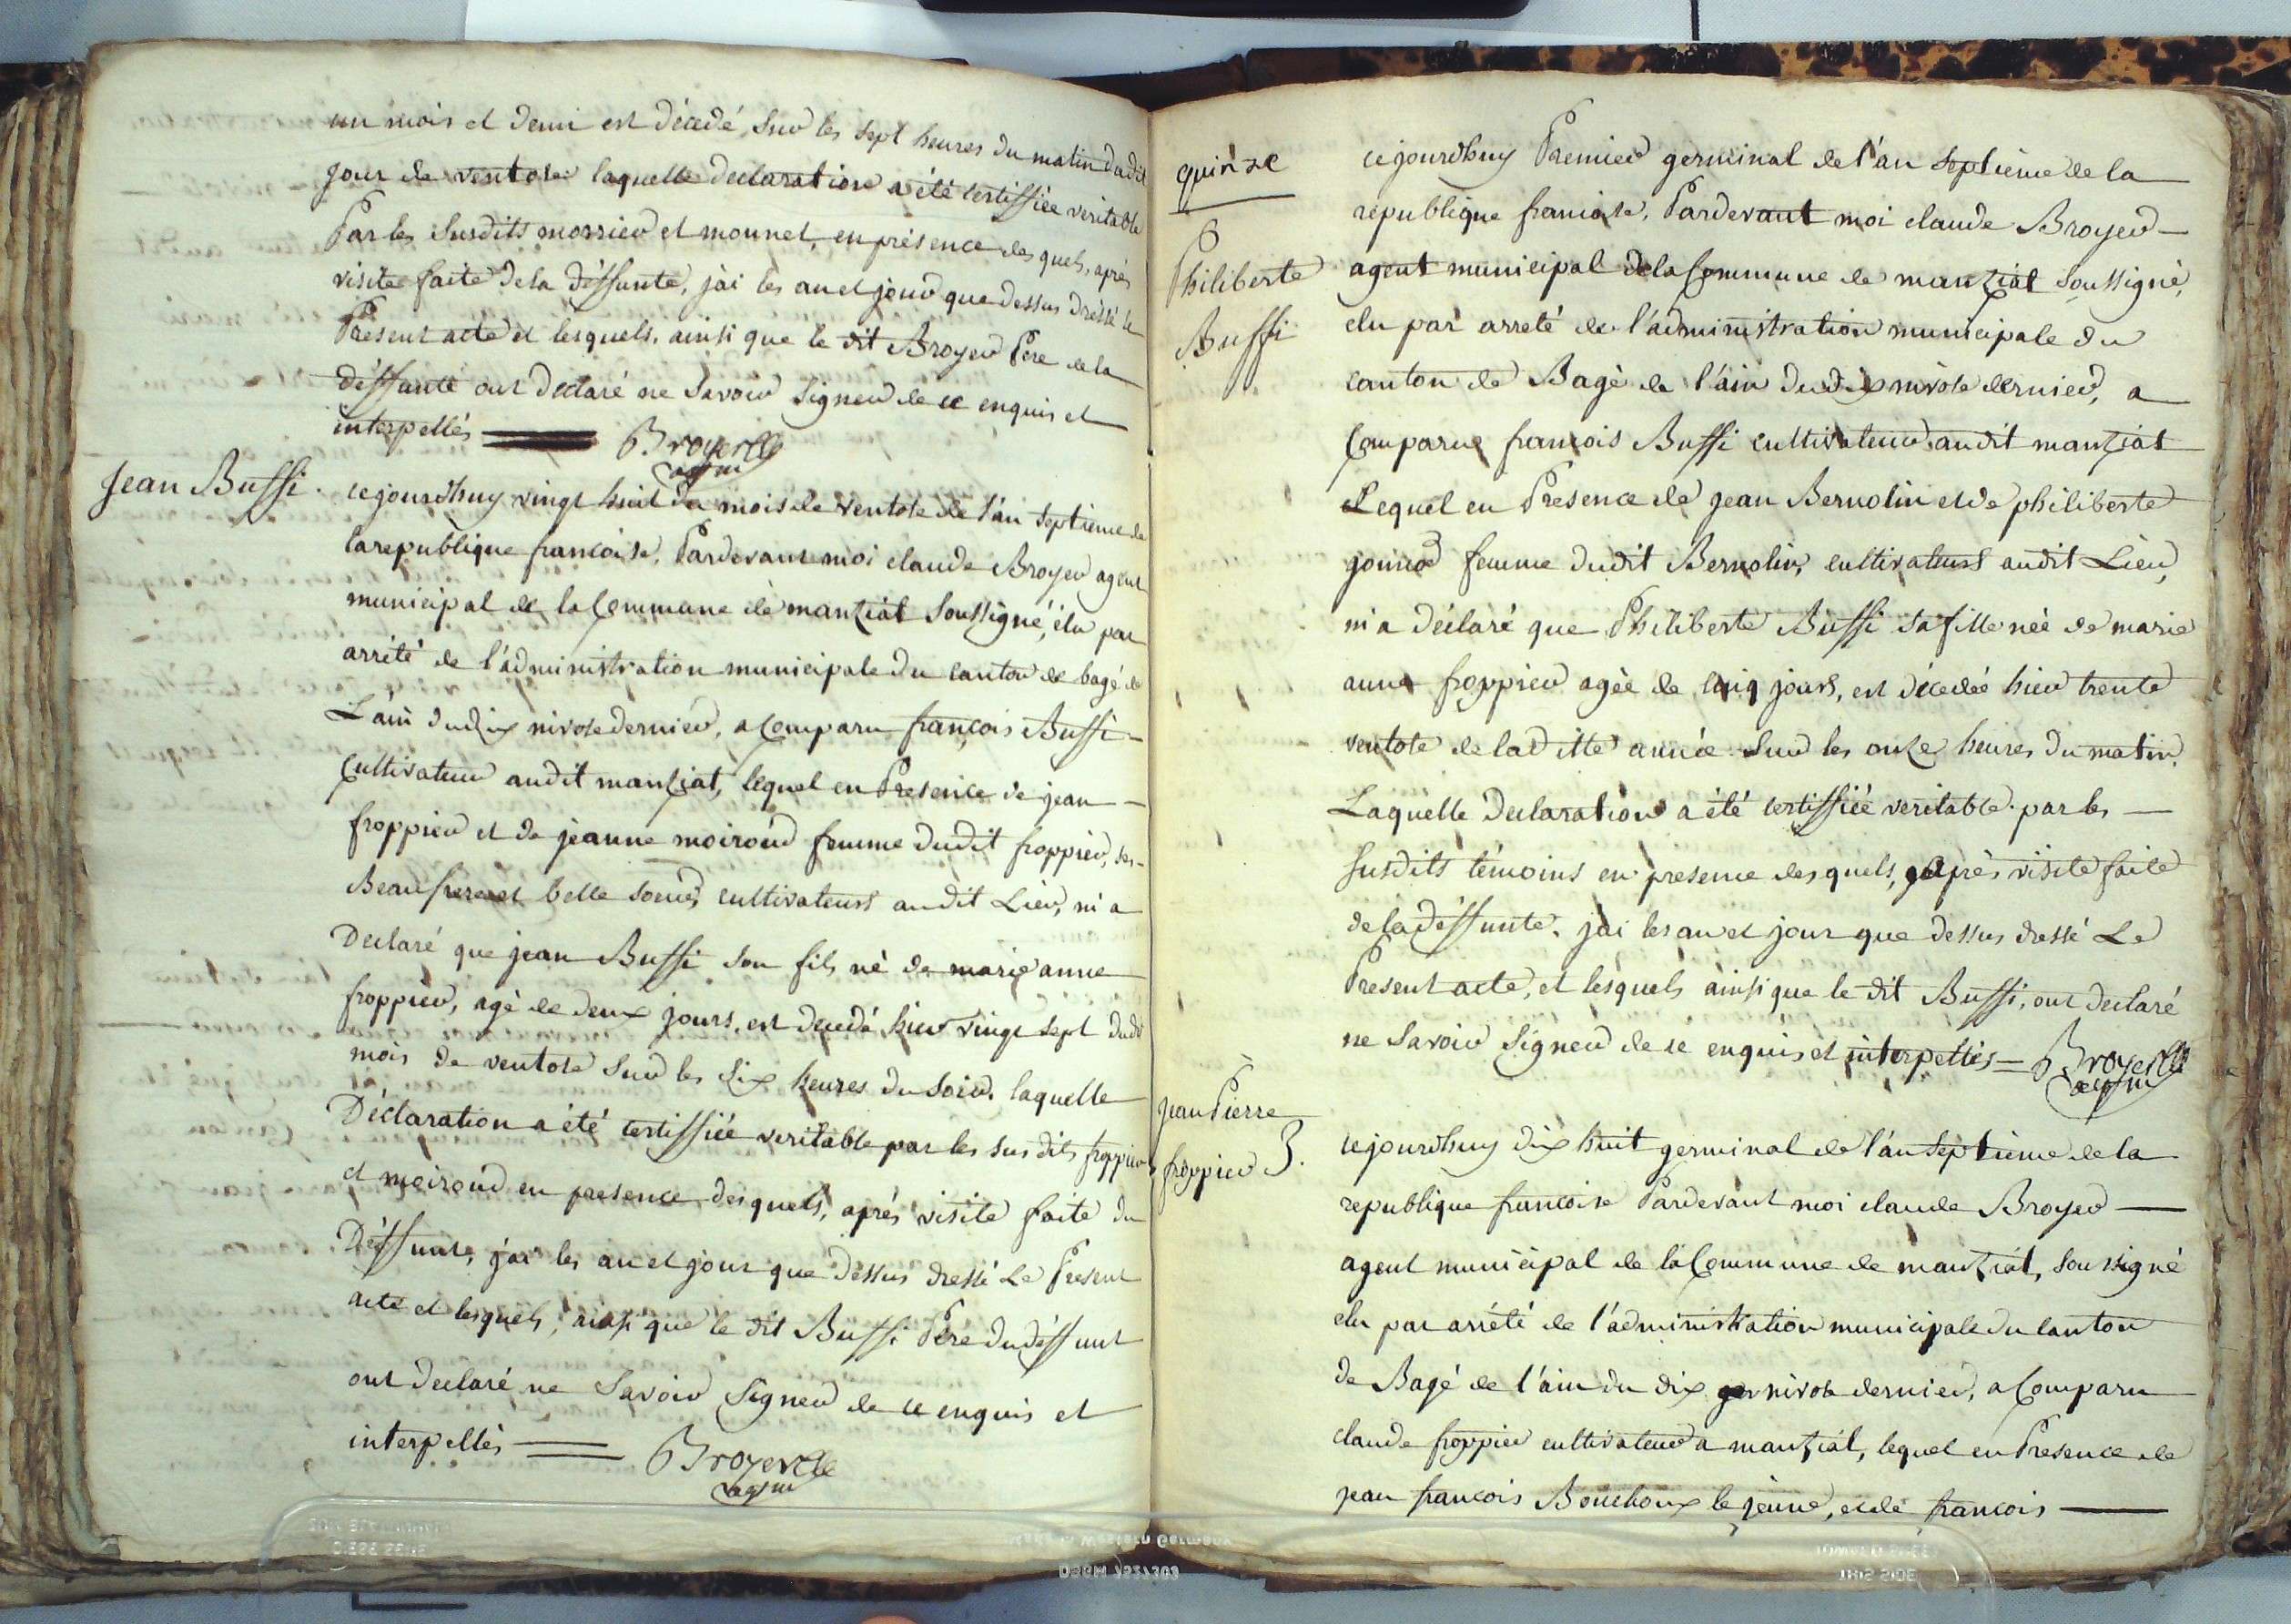 un mois et demi est décedé, sur les sept heures du matin dudit
jour de ventose laquelle declaration a été certiffiée veritable
Par les susdits morrier et monnet, en présence des quels, après
visite faite de la déffunte, j'ai les an et jour que dessus dressé le
Présent acte et lesquels, ainsi que le dit Broyer Pere de la
déffunte ont declaré ne savoir signer de ce enquis et
interpellés Broyer
agm
Jean Buffi.
cejourdhuy vingt huit du mois de ventose de l'an septieme de
la republique françoise, Pardevant moi claude Broyer agent
municipal de la Commune de manziat soussigné, élu par
arrété de l'administration municipale du canton de bagé de
L'ain du dix nivose dernier, a comparu françois Buffi
Cultivateur audit manziat, lequel en Presence de jean
froppier et de jeanne moiroud femme dudit froppier, ses
Beaufrere et belle soeur, cultivateurs audit Lieu, m'a
Declaré que jean Buffi son fils né de marie anne
froppier, agé de deux jours, est decedé hier vingt sept dudt
mois de ventose sur les six heures du soir. laquelle
Déclaration a été certiffiée veritable par les susdits froppier
et moiroud en presence desquels, aprés visite faite du
Déffunt, j'ai les an et jour que dessus dressé Le Present
acte et lesquels, ainsi que le dit Buffi Pere du déffunt
ont declaré ne Savoir Signer de ce enquis et
interpellés Broyer
agm
quinze
Philiberte
Buffi
cejourdhuy Premier germinal de l'an septieme de la
republique françoise, Pardevant moi claude Broyer
agent municipal de la Commune de manziat soussigné,
elu par arreté de l'administration municipale du
canton de Bagé de l'ain du dix nivose dernier, a
Comparu françois Buffi cultivateur audit manziat
Lequel en Presence de jean Bernolin et de philiberte
femme dudit Bernolin, cultivateurs audit Lieu,
m'a déclaré que Philiberte Buffi sa fille née de marie
anne froppier agée de cinq jours, est décedée hier trente
ventose de laditte année sur les onze heures du matin.
Laquelle declaration a été certiffiée veritable par les
susdits témoins en presence des quels, après visite faite
de la déffunte, j'ai les an et jour que dessus dressé Le
Present acte, et lesquels ainsi que le dit Buffi, ont declaré
ne Savoir Signer de ce enquis et interpellés = Broyer
agm
jean Pierre
froppier 3.
cejourdhuy dix huit germinal de l'an septieme de la
republique françoise Pardevant moi claude Broyer
agent municipal de la Commune de manziat, soussigné
elu par arrété de l'administration municipale du canton
de Bagé de l'ain du dix nivose dernier, a Comparu
claude froppier cultivateur a manziat, lequel en Presence de
jean françois Bouchoux le jeune, et de françois